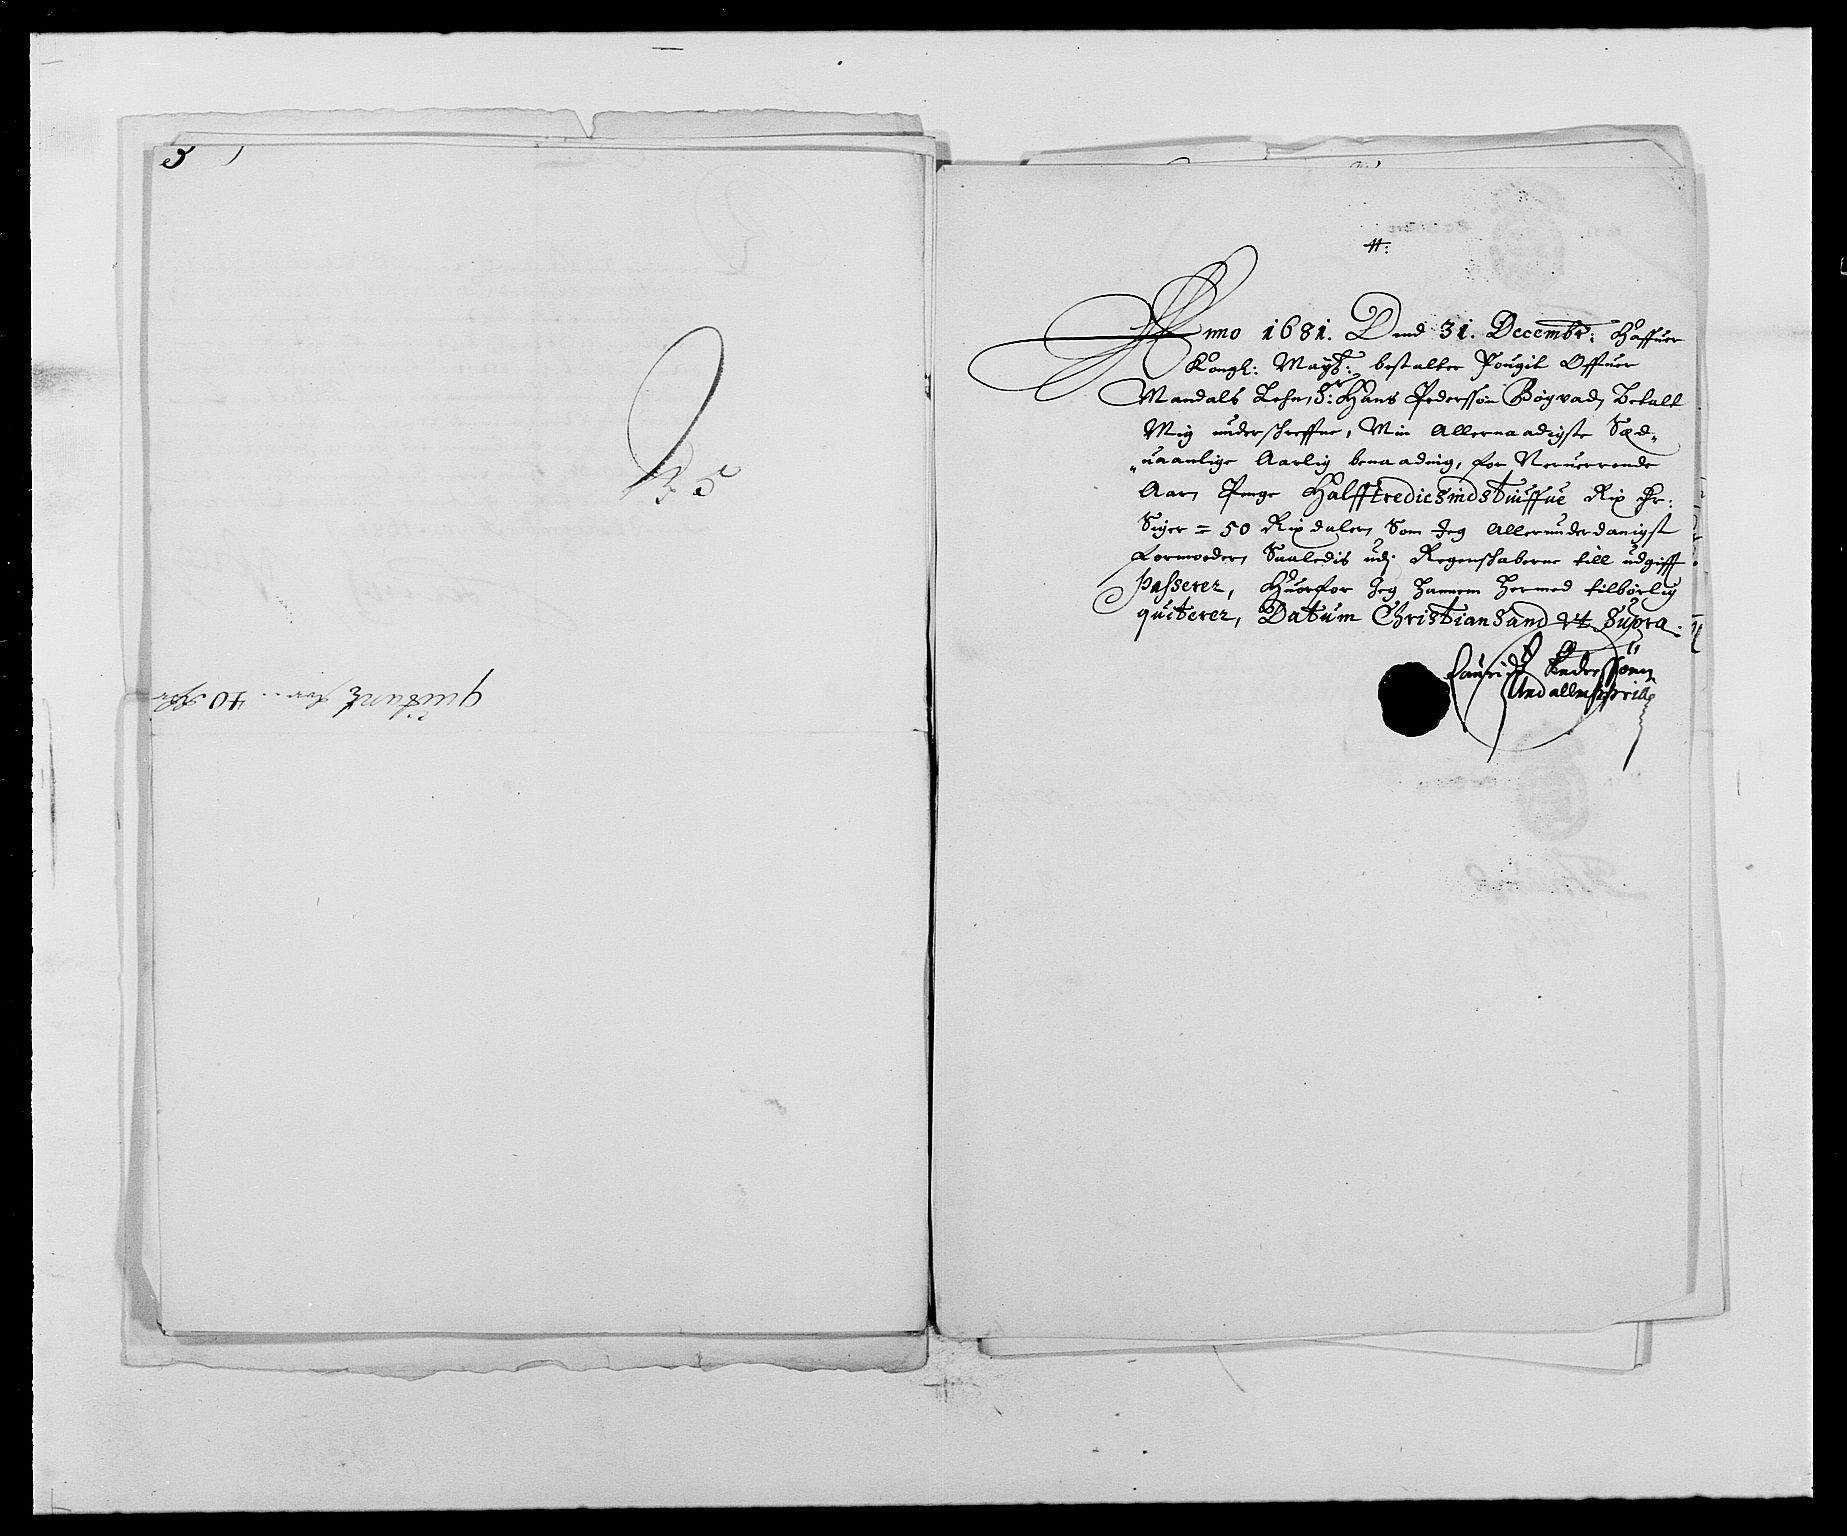 35
quitantz paa 40 Rdr
#:
Anno 1681. Dend 31. Decembr: Haffuer
Kongl: Mayts: bestalter Fougit Offuer
Mandals Lehn, Sr: Hans Pederssøn Bøgvad, Betalt
Mig underschreffne, Min Allernaadigste Sæd„
„uaanlige Aarlig benaading, for Neruerrende
Aar, Penge Halfftredicsindstiuffue Rix dr:
Siger = 50 Rixdaler, Som Jeg Allerunderdanigst
formoeder, Saaledis udj Regenschaberne till udgifft
passerer, Huorfor Jeg hannem hermed tilbørlig
quiterer, Datum Christiansand Ut Supra:
Lauridz Anderssønn